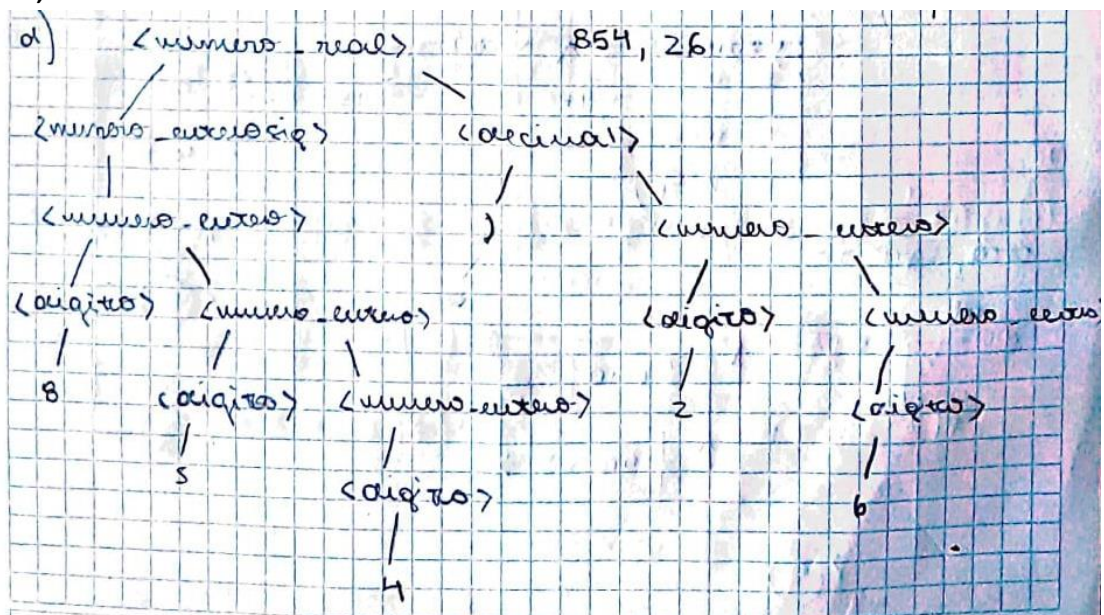 d) <numero_real> 854, 26
<numero_enterosig> <decimal>
<numero_entero> , <numero_entero>
<digito> <numero_entero> <digito> <numero_entero>
8 <digito> <numero_entero> 2 <digito>
5 <digito> 6
4